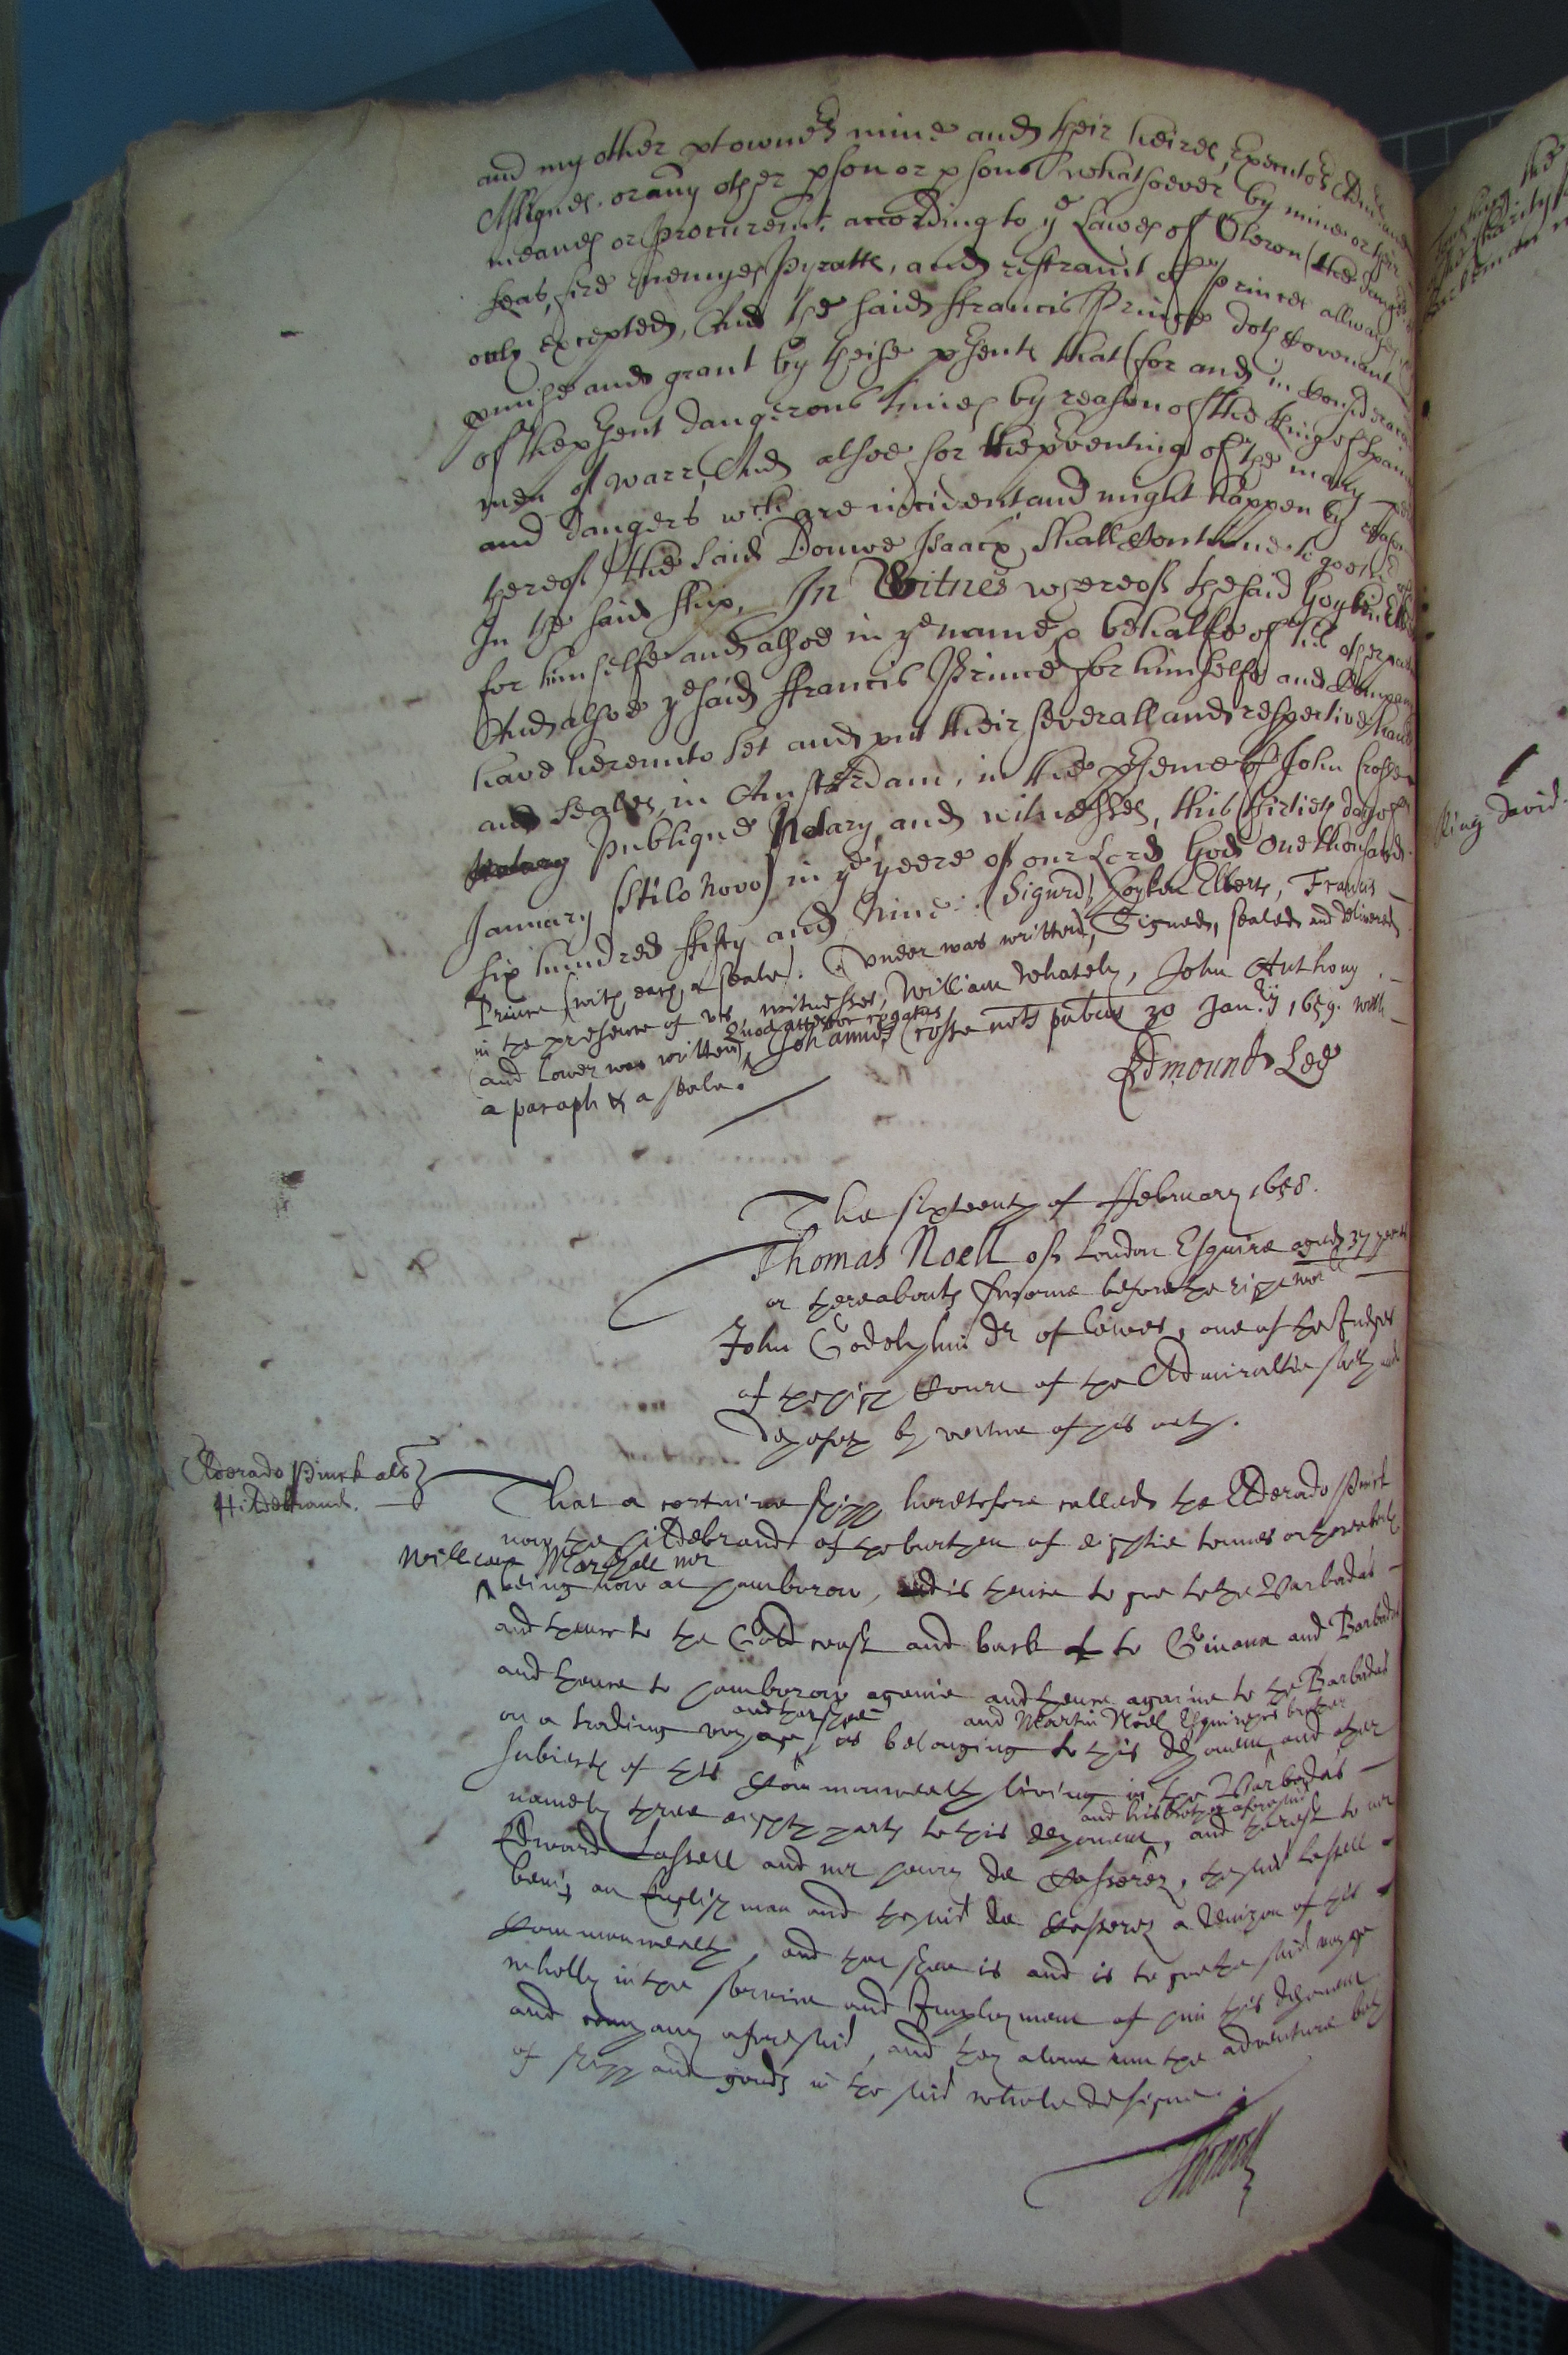 and my other ptowners mine and their heires, Executors Admrs and
Assignes, or any other pson or psons whatsoever by mine or their
meanes or procuremt. according to ye Lawes of Oleron (the dangers
seas, fire Enemyes Pyratts, and restraint of Princes allwayes
only excepted, And the said ffrancis Prince doth Covenant
pmise and grant by theise psents that (for and in Consideracion
of the psent dangerous times by reason of the King of Spaines
men of warr, And alsoe for the pventing of the many
and dangers wch are incident and might happen by reason
thereof) the said Douwe Isaacx shall Continue to goe
In the said ship. In Witnes whereof the said Goyken Elberts
for himselfe and alsoe in ye name & behalfe of his other
And alsoe ye said ffrancis Prince for himselfe and Company
have hereunto set and put their severall and respective hands
and seales in Amsterdam, in the psence of John Crosse
Notary Publique Notary and witnesses, this thirtieth day of
January (stilo Novo) in ye yeere of our Lord God One thousand
six hundred ffifty and Nine. (Signed) Goyken Elberts, Francis
Prince (with each a seale). (under was written) Signed, sealed and delivered
in the presence of us, witnesses, William Whately, John Anthony
(and lower was written) Quod attestor rogatus Johannes Crosse nots pubcus 30 Janry 1659. with
a paraph & a seale.
Edmount Leg
The sixteenth of ffebruary 1658.
Thomas Noell of London Esquire aged 37 yeares
or thereabouts sworne before the right worll
John Godolphin Dr of lawes, one of the Judges
of the high Court of the Admiraltie saith and
deposeth by vertue of his oath.
Elderado Pinck als
Hildebrand.
That a certaine shipp heretofore called the Elderado Pinck
now the Hildebrand of the burthen of eightie tonnes or thereabouts
William Marshall mr
being now at hamborow, and is thence to goe to the Barbadas
and thence to the Gold coast and back to Guiana and Barbadas
and thence to hamborow againe and thence againe to the Barbadas
and that shee and Martin Noell Esquire his brother
on a trading voyage, as belonging to this deponent and other
subiects of this Common wealth living in the Barbadas
and his brother aforesaid
namely three eighth parts to this deponent, and the rest to mr
Edward Lassell and mr henry de Casseres, the said Lassell
being an English man and the said de Casseres a denizen of this
Common wealth, and that shee is and is to goe the said voyage
wholly in the service and Imployment of him this deponent
and company aforesaid, and they alone run the adventure both
of shipp and goods in the said whole designe.
King David.